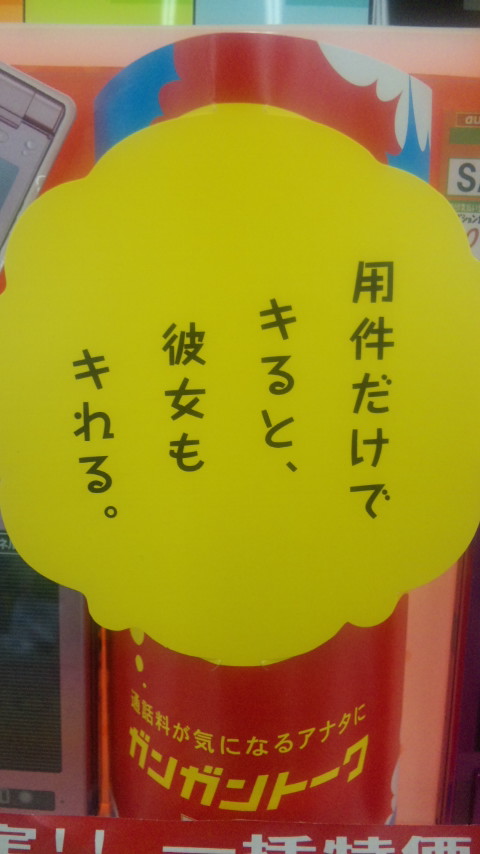 用件だけで
キると、
彼女も
キれる。
通話料が気になるアナタに
ガンガントーク
au
一括特価